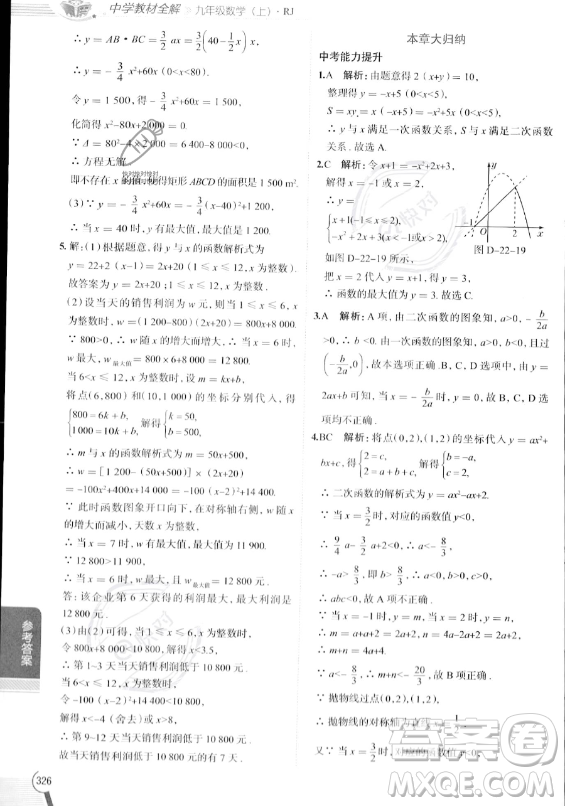 中学教材全解 九年级数学(上)·RJ
∴ y=AB·BC=x(40-\frac{3}{4}x)+20x
∴ y=-\frac{3}{4}x²+60x(0<x<80).
令 y=1 500,得-\frac{3}{4}x²+60x=1 500,
化简得 x²-80x+2 000=0.
∴ 方程无解.
即不存在 x 的值,使得矩形 ABCD 的面积是 1 500 m².
(3)∵ y=-\frac{3}{4}x²+60x=-\frac{3}{4}(x-40)²+1 200,
∴ 当 x=40 时,y 有最大值,最大值为 1 200.
5.解:(1)根据题意,得 y 与 x 的函数解析式为
y=22+2(x-1)=2x+20(1≤x≤12,x 为整数).
故答案为 y=2x+20(1≤x≤12,x 为整数).
(2)设当天的销售利润为 w 元,则当 1≤x≤6 且 x
为整数时,w=(1 200-800)(2x+20)=800x+8 000.
∵ 800>0,∴ w 随 x 的增大而增大,∴ 当 x=6 时,
w 最大,w最大值=800×6+8 000=12 800.
当 6<x≤12,且 x 为整数时,设 m=kx+b,
将点(6,800)和(10,1 000)的坐标分别代入,得
{800=6k+b, 1 000=10k+b, 解得{k=50, b=500,
∴ m 与 x 的函数解析式为 m=50x+500,
∴ w=[1 200-(50x+500)]×(2x+20)
=-100x²+400x+14 000=-100(x-2)²+14 400.
∵ 此时函数图象开口向下,在对称轴右侧,w 随 x
的增大而减小,天数 x 为整数,
∴ 当 x=7 时,w 有最大值,为 11 900.
∵ 12 800>11 900,
∴ 当 x=6 时,w 最大,w最大值=12 800.
答:该企业第 6 天获得的利润最大,最大利润是
12 800 元.
(3)由(2)可得,当 1≤x≤6 时,
令 800x+8 000<10 800,解得 x<3.5,
∴ 第 1~3 天当天销售利润低于 10 800 元.
当 6<x≤12 时,
令-100(x-2)²+14 400<10 800,
解得 x<-4(舍去)或 x>8,
∴ 第 9~12 天当天销售利润低于 10 800 元.
故当天销售利润低于 10 800 元的有 7 天.
参考答案
326
本章大归纳
中考能力提升
1.A 解析:由题意得 2(x+y)=10,
整理得 y=-x+5(0<x<5),
S=xy=x(-x+5)=-x²+5x(0<x<5),
∴ y 与 x 满足一次函数关系,S 与 x 满足二次函数
关系.故选 A.
2.C 解析:令 x+1=-x²+2x+3,
解得 x=-1 或 x=2,
x+1(-1≤x≤2),
如图 D-22-19 所示,
把 x=2 代入 y=x+1,得 y=3,
∴ 函数的最大值为 y=3.
y
O
2
x
图 D-22-19
3.A 解析:A 项,由二次函数的图象知,a>0,-\frac{b}{2a}
>0,∴ b<0.由一次函数的图象知,a>0,b<0,且过点
(-\frac{b}{2a},0),故本选项正确.B 项,当 x=-\frac{b}{2a}时,y=
项均不正确.
4.BC 解析:将点(0,2),(1,2)的坐标代入 y=ax²+
bx+c,得{2=c, 2=a+b+c, 解得{b=-a, c=2.
∴ 二次函数的解析式为 y=ax²-ax+2.
∵ 当 x=\frac{3}{2}时,对应的函数值 y<0,
∴ \frac{9}{4}a-\frac{3}{2}a+2<0,∴ a<-\frac{8}{3},
∴ -a>\frac{8}{3},即 b>\frac{8}{3},∴ a<0,b>0,c>0,
∴ abc<0,故 A 不正确.
∵ a<-\frac{8}{3},∴ m+n<-\frac{20}{3},故 B 项正确.
∵ 抛物线过点(0,2),(1,2),
又∵ 当 x=\frac{3}{2}时,对应的函数值 y<0,